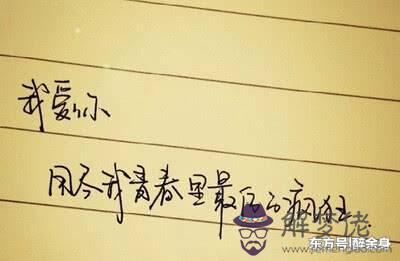 我爱你
用尽我青春里最后的疯狂.
解梦佬
www.jiemenglao.com
东方号|醉余身